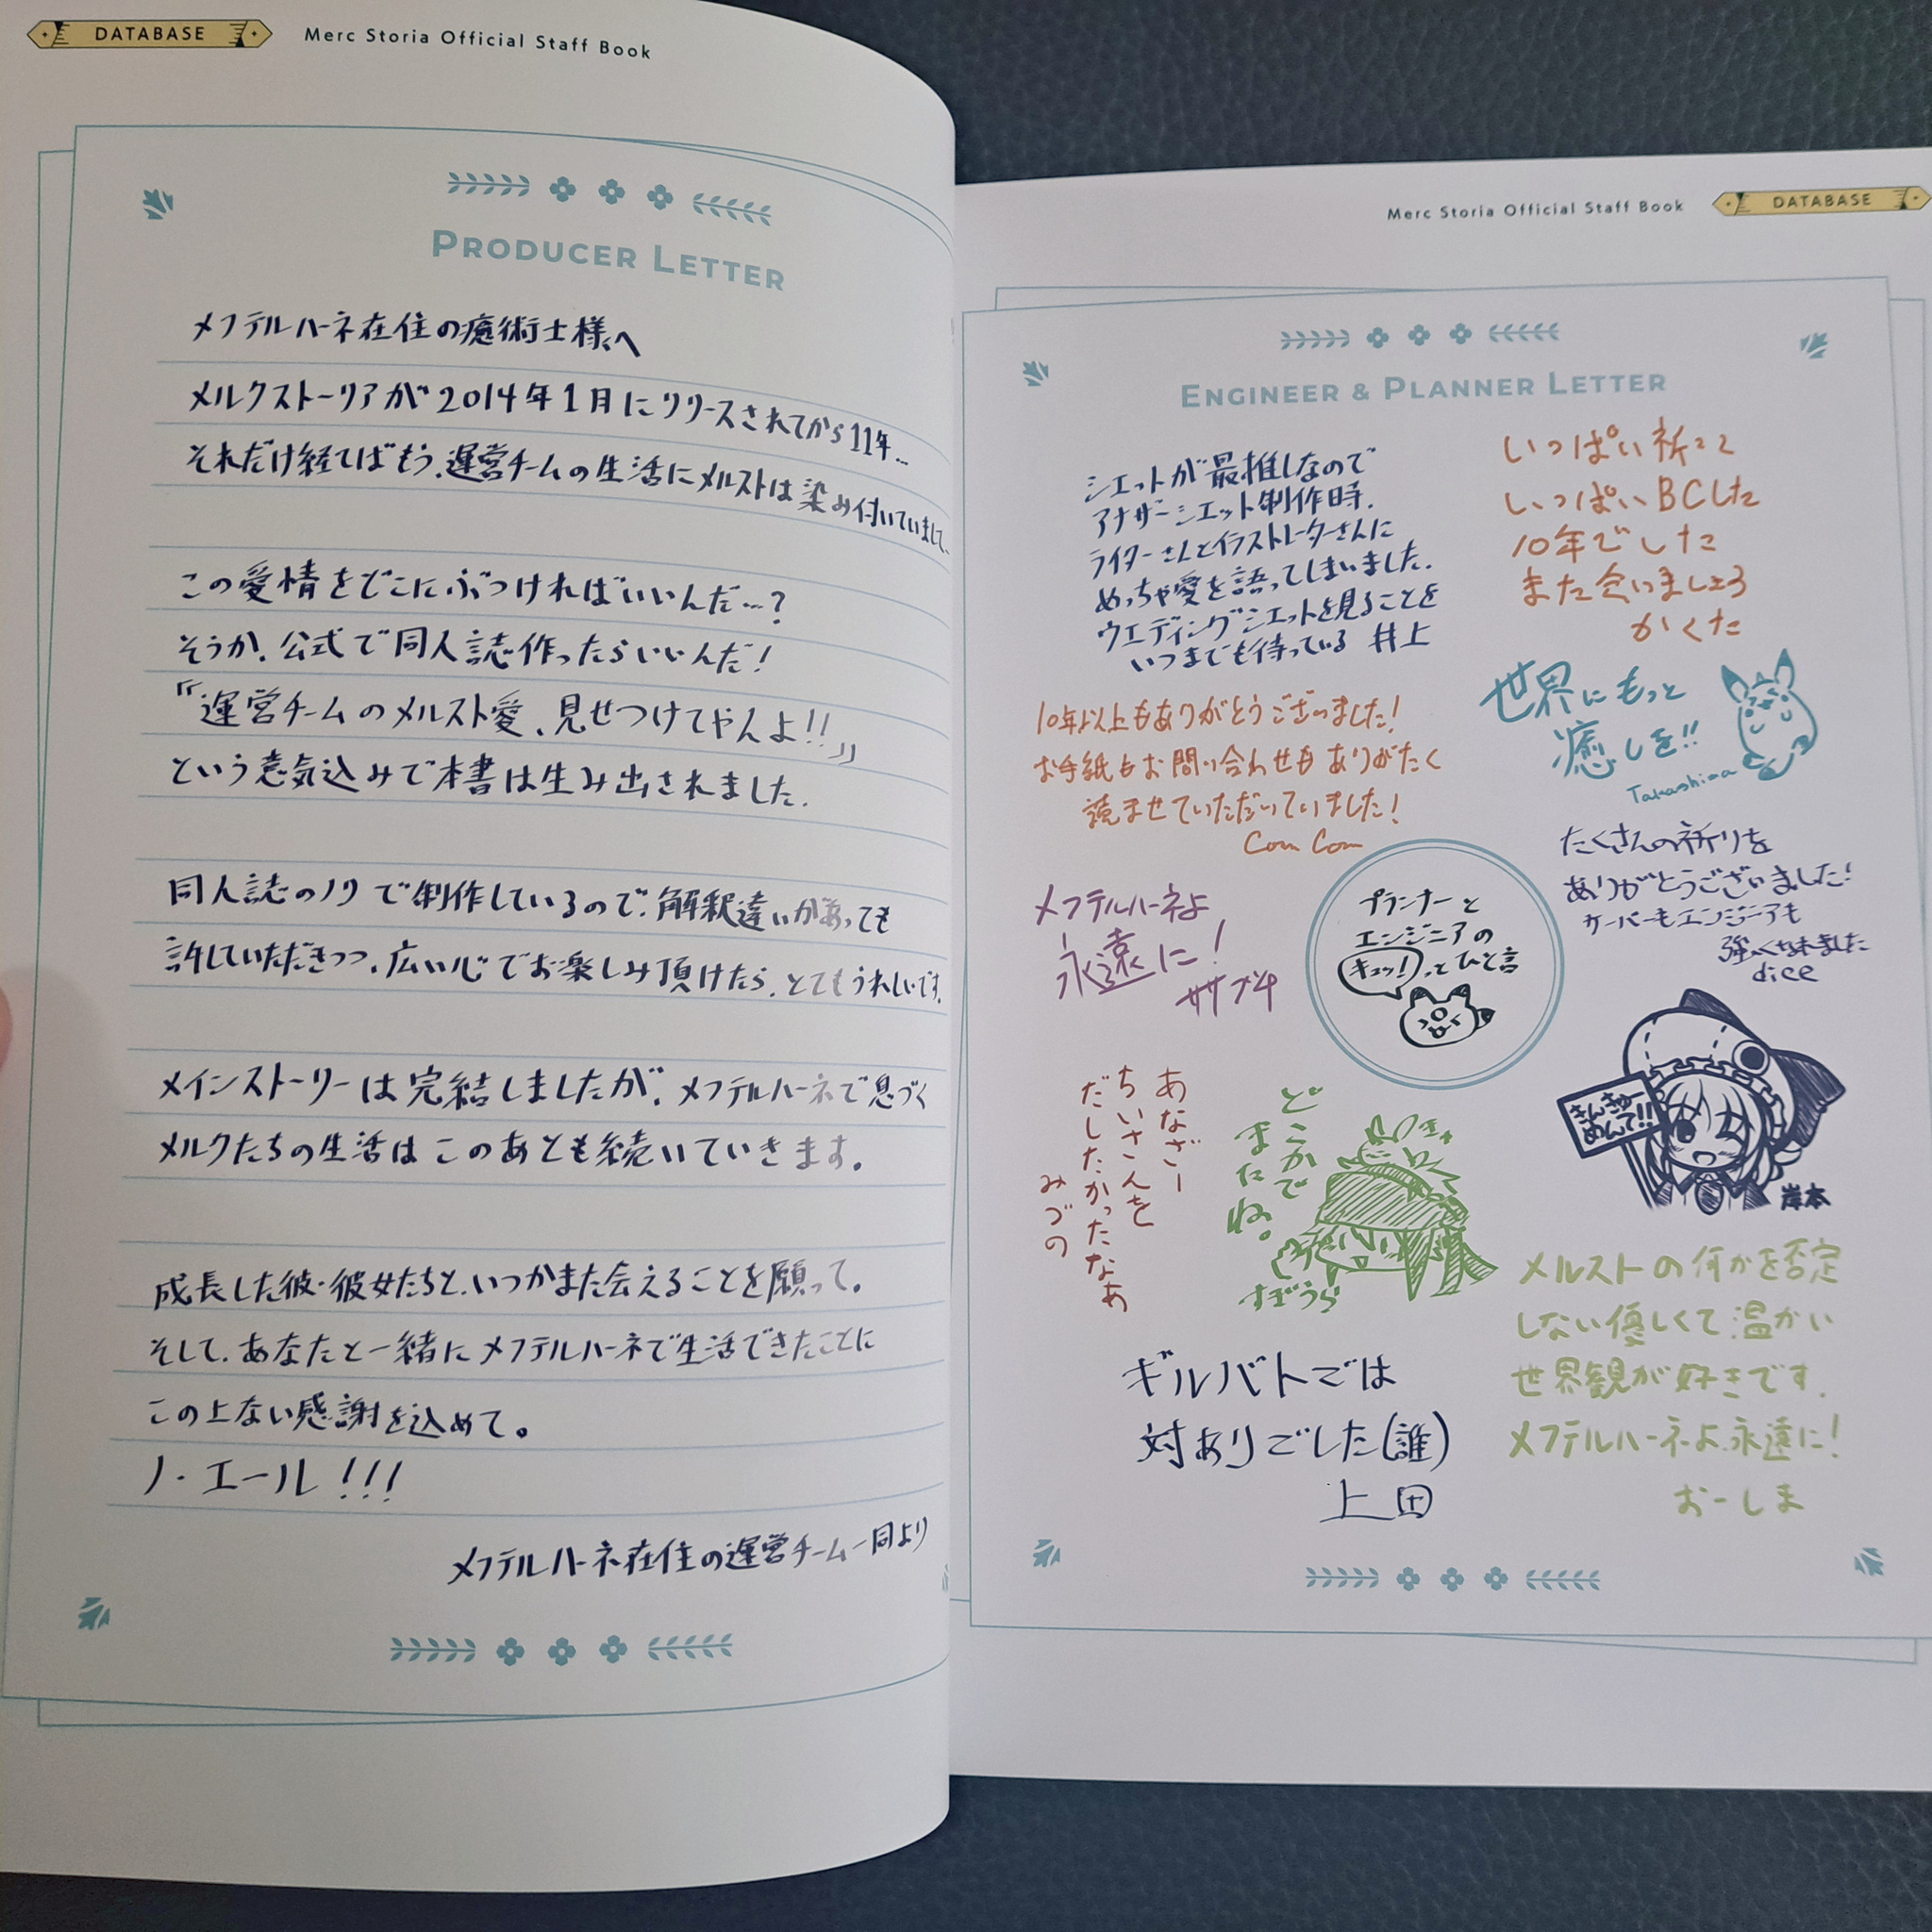 DATABASE
Merc Storia Official Staff Book
PRODUCER LETTER
メフテルハーネ在住の癒術士様へ
メルクストーリアが2014年1月にリリースされてから11年…
それだけ経てばもう、運営チームの生活にメルストは染み付いていまして…
この愛情をどこにぶつければいいんだ…?
そうか、公式で同人誌作ったらいいんだ!
『運営チームのメルスト愛、見せつけてやんよ!!』
という意気込みで本書は生み出されました。
同人誌のノリで制作しているので、解釈違いがあっても
許していただきつつ、広い心でお楽しみ頂けたら、とてもうれしいです。
メインストーリーは完結しましたが、メフテルハーネで息づく
メルクたちの生活はこのあとも続いていきます。
成長した彼・彼女たちと、いつかまた会えることを願って。
そして、あなたと一緒にメフテルハーネで生活できたことに
この上ない感謝を込めて。
ノ・エール!!!
メフテルハーネ在住の運営チーム一同より
Merc Storia Official Staff Book
DATABASE
ENGINEER & PLANNER LETTER
シエットが最推しなので
アナザーシエット制作時、
ライターさんとイラストレーターさんに
めっちゃ愛を語ってしまいました。
ウエディングシエットを見ることを
いつまでも待っている 井上
いっぱい祈って
いっぱいBCした
10年でした
また会いましょう
かくた
10年以上もありがとうございました!
お手紙もお問い合わせもありがたく
読ませていただいていました!
Com Com
世界にもっと
癒しを!!
Takashima
たくさんの祈りを
ありがとうございました!
サーバーもエンジニアも
強くなれました
dice
メフテルハーネよ
永遠に!
プランナーと
エンジニアの
キュッ!っとひと言
きんきゅー
めんて!!
岸本
あなざー
ちいさんを
だしたかったなあ
みづの
どこかで
またね。
すぎうら
メルストの何かを否定
しない優しくて温かい
世界観が好きです。
メフテルハーネよ永遠に!
おーしま
ギルバトでは
対ありごした(誰)
上田